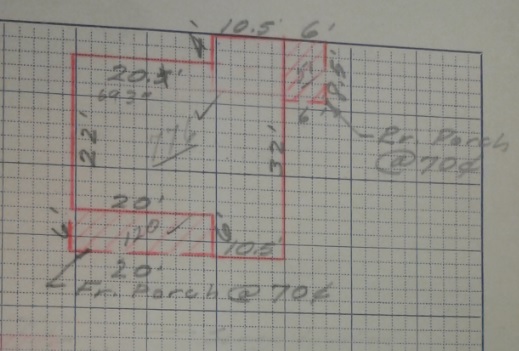 10.5' 6'
4'
20.5'
8.5'
6'
22'
32'
Rr. Porch
@ 70¢
20'
6' 120 ✓ 6'
10.5'
20'
Fr. Porch @ 70¢